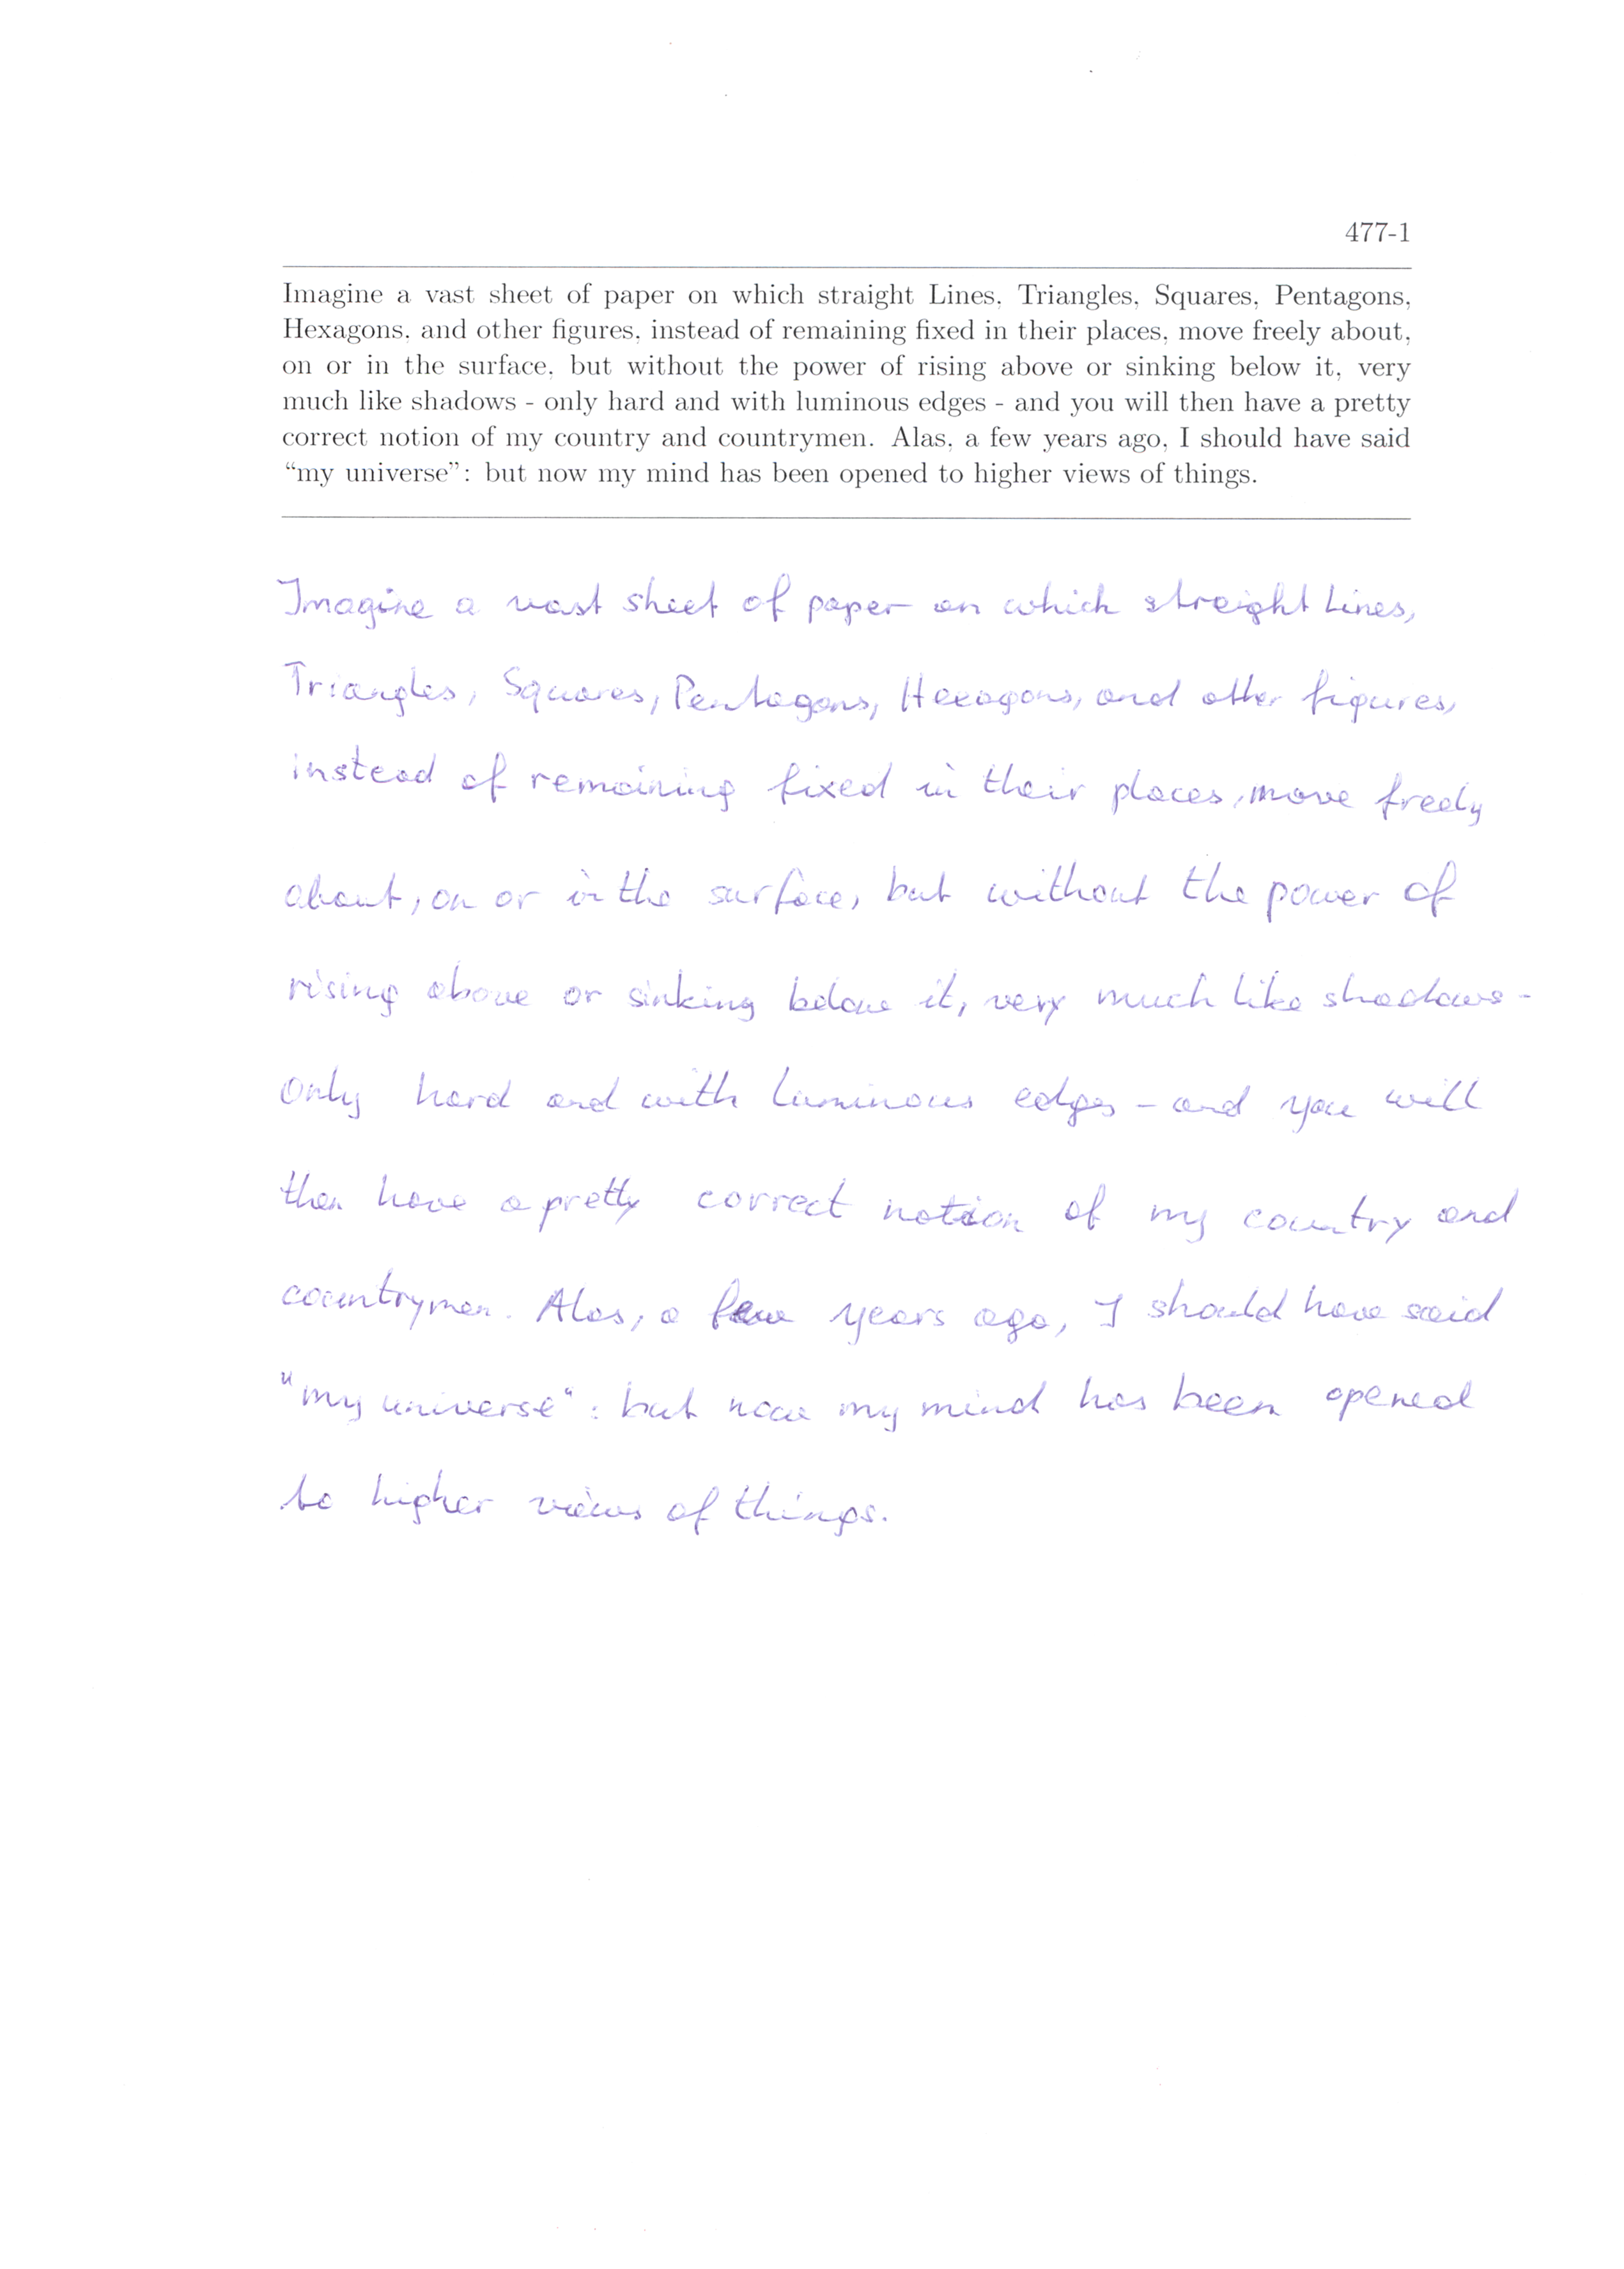 477-1
Imagine a vast sheet of paper on which straight Lines, Triangles, Squares, Pentagons,
Hexagons, and other figures, instead of remaining fixed in their places, move freely about,
on or in the surface, but without the power of rising above or sinking below it, very
much like shadows - only hard and with luminous edges - and you will then have a pretty
correct notion of my country and countrymen. Alas, a few years ago, I should have said
“my universe”: but now my mind has been opened to higher views of things.
Imagine a vast sheet of paper on which straight Lines,
Triangles, Squares, Pentagons, Hexagons, and other figures,
instead of remaining fixed in their places, move freely
about, on or in the surface, but without the power of
rising above or sinking below it, very much like shadows -
only hard and with luminous edges - and you will
then have a pretty correct notion of my country and
countrymen. Alas, a few years ago, I should have said
"my universe": but now my mind has been opened
to higher views of things.